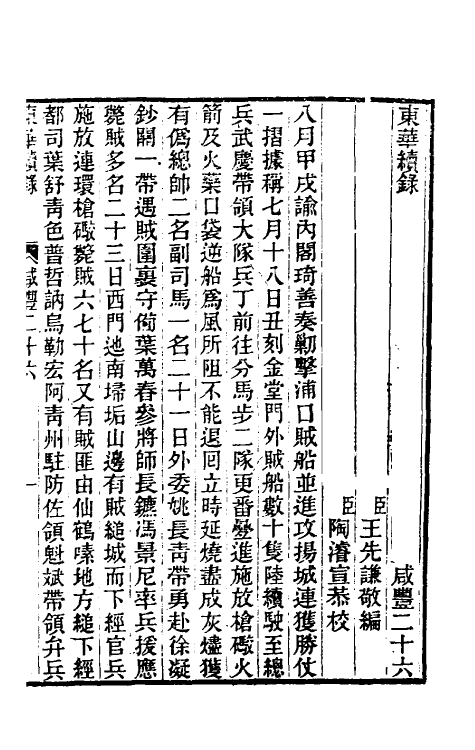 東華續錄　咸豐二十六
臣王先謙敬編
臣陶濬宣恭校
八月甲戌諭內閣琦善奏勦擊浦口賊船並進攻揚城連獲勝仗
一摺據稱七月十八日丑刻金堂門外賊船數十隻陸續駛至總
兵武慶帶領大隊兵丁前往分馬步二隊更番疊進施放槍礮火
箭及火藥口袋逆船爲風所阻不能退回立時延燒盡成灰燼獲
有僞總帥二名副司馬一名二十一日外委姚長靑帶勇赴徐凝
鈔關一帶遇賊圍裏守備葉萬春參將師長鑣馮景尼率兵援應
斃賊多名二十三日西門迆南埽垢山邊有賊縋城而下經官兵
施放連環槍礮斃賊六七十名又有賊匪由仙鶴嗉地方縋下經
都司葉舒靑色普哲訥烏勒宏阿靑州駐防佐領魁斌帶領弁兵
東華續錄　咸豐二十六　一